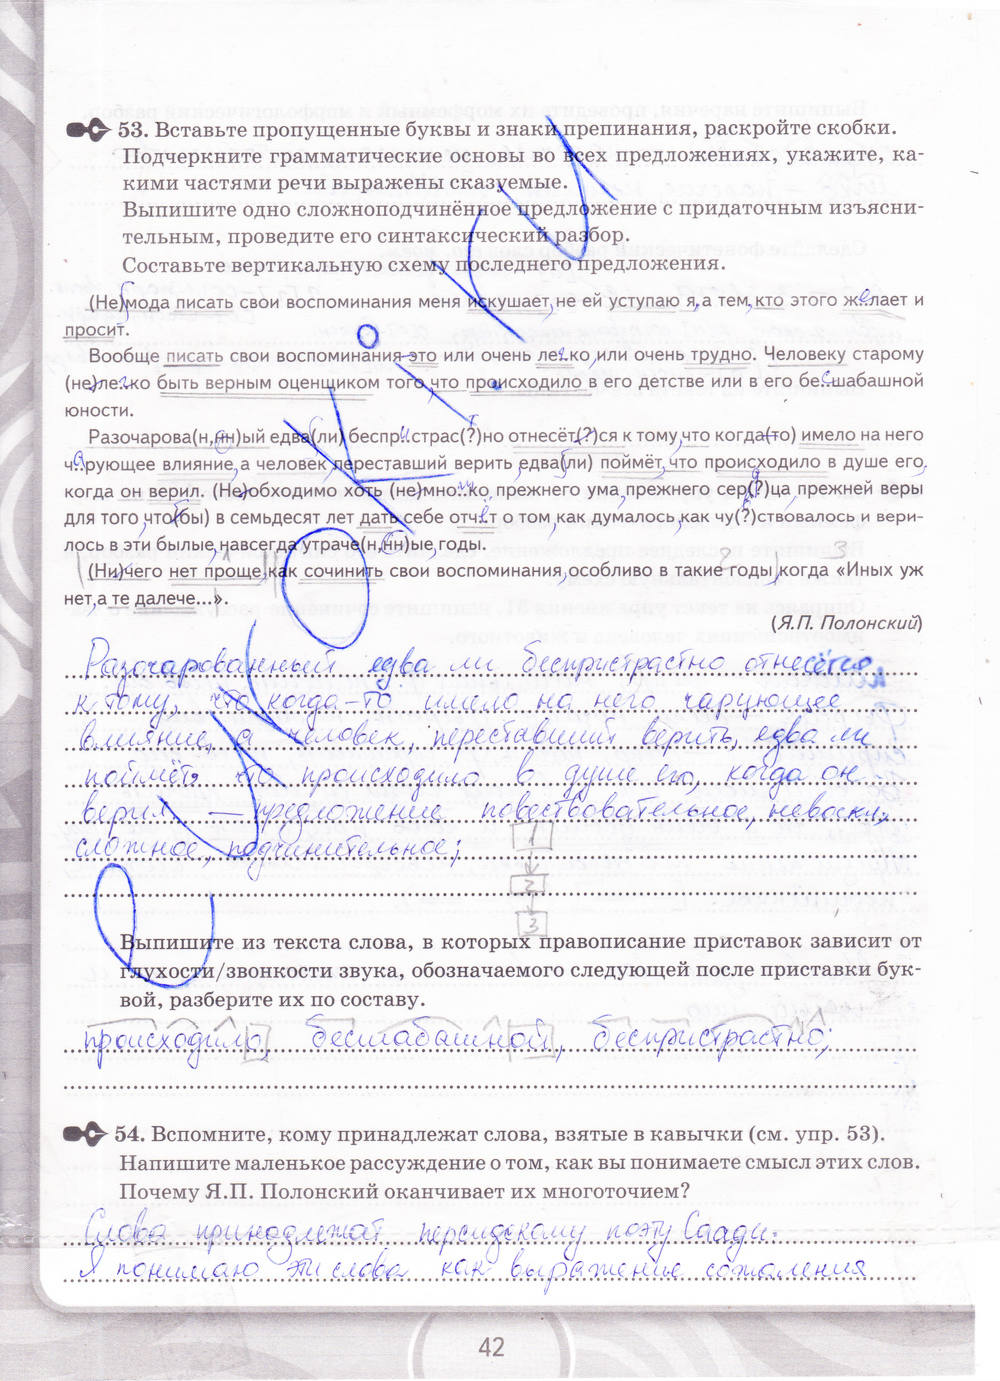 53. Вставьте пропущенные буквы и знаки препинания, раскройте скобки.
Подчеркните грамматические основы во всех предложениях, укажите, ка-
кими частями речи выражены сказуемые.
Выпишите одно сложноподчинённое предложение с придаточным изъясни-
тельным, проведите его синтаксический разбор.
Составьте вертикальную схему последнего предложения.
(Не)мода писать свои воспоминания меня искушает, не ей уступаю я, а тем, кто этого желает и
просит.
Вообще писать свои воспоминания - это или очень легко, или очень трудно. Человеку старому
(не)легко быть верным оценщиком того, что происходило в его детстве или в его бесшабашной
юности.
Разочарова(н,нн)ый едва(ли) беспристрас(?)но отнесёт(?)ся к тому, что когда(то) имело на него
чарующее влияние, а человек, переставший верить, едва(ли) поймёт, что происходило в душе его,
когда он верил. (Не)обходимо хоть (не)много прежнего ума, прежнего сер(?)ца, прежней веры
для того, что(бы) в семьдесят лет дать себе отчёт о том, как думалось, как чу(?)ствовалось и вери-
лось в эти былые, навсегда утраче(н,нн)ые, годы.
(Ни)чего нет проще, как сочинить свои воспоминания, особливо в такие годы, когда «Иных уж
нет, а те далече...».
(Я.П. Полонский)
Разочарованный едва ли беспристрастно отнесётся
к тому, что когда-то имело на него чарующее
влияние, а человек, переставший верить, едва ли
поймёт, что происходило в душе его, когда он
верил. — предложение повествовательное, невоскл.,
сложное, подчинительное;
1
2
3
Выпишите из текста слова, в которых правописание приставок зависит от
глухости/звонкости звука, обозначаемого следующей после приставки бук-
вой, разберите их по составу.
происходило, бесшабашной, беспристрастно;
54. Вспомните, кому принадлежат слова, взятые в кавычки (см. упр. 53).
Напишите маленькое рассуждение о том, как вы понимаете смысл этих слов.
Почему Я.П. Полонский оканчивает их многоточием?
Слова принадлежат персидскому поэту Саади.
Я понимаю эти слова как выражение сожаления
42